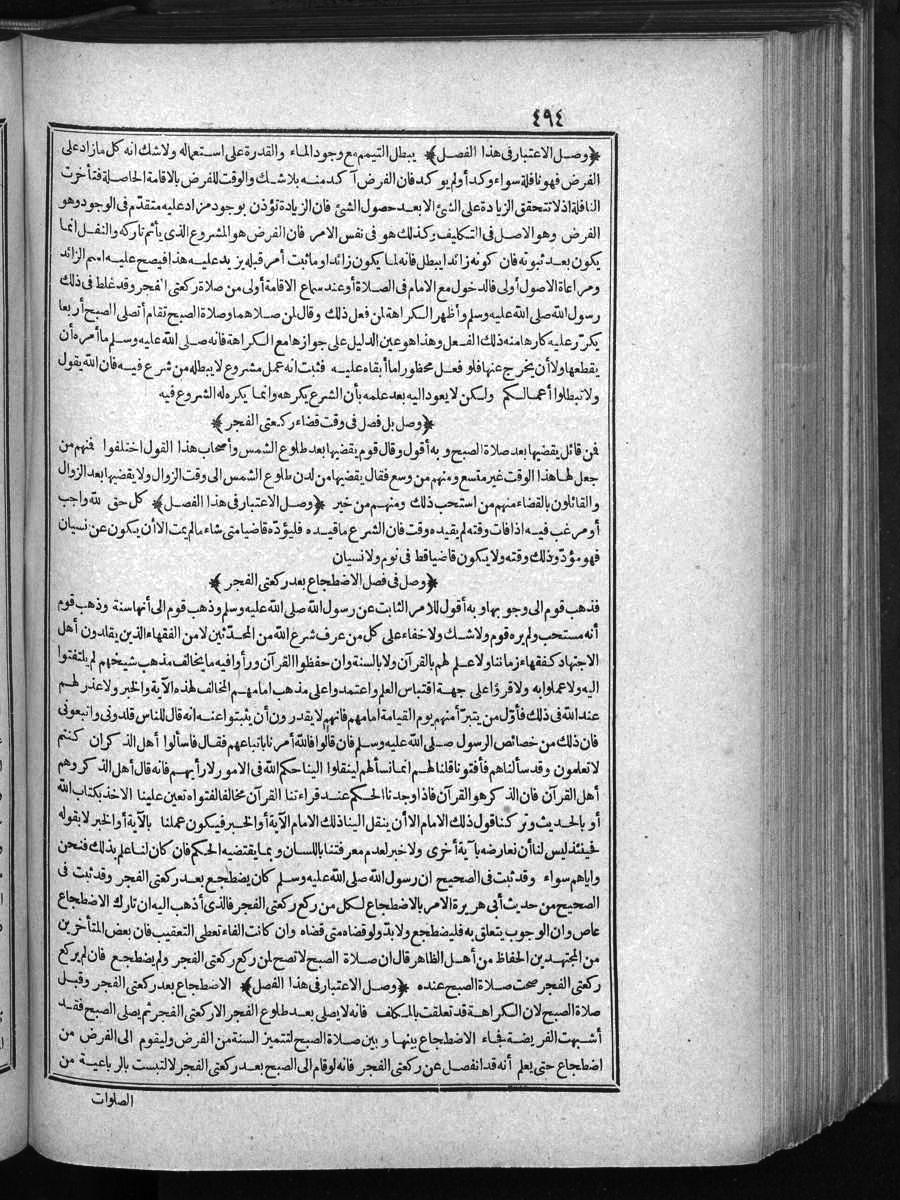 ٤٩٤
﴿وصل الاعتبار فى هذا الفصل﴾ يبطل التيمم مع وجود الماء والقدرة على استعماله ولا شك انه كل ما زاد على
الفرض فهو نافلة سواء وكد أو لم يوكد فان الفرض آكد منه بلا شك والوقت للفرض بالاقامة الحاصلة فتأخرت
النافلة اذ لا تتحقق الزيادة على الشئ الا بعد حصول الشئ فان الزيادة تؤذن بوجود مزاد عليه متقدّم فى الوجود وهو
الفرض وهو الاصل فى التكليف وكذلك هو فى نفس الامر فان الفرض هو المشروع الذى يأثم تاركه والنفل انما
يكون بعد ثبوته فان كونه زائدا يبطل فانه لما يكون زائدا وما ثبت أمر قبله يزيد عليه هذا فيصح عليه اسم الزائد
ومراعاة الاصول أولى فالدخول مع الامام فى الصلاة أو عند سماع الاقامة أولى من صلاة ركعتى الفجر وقد غلط فى ذلك
رسول الله صلى الله عليه وسلم وأظهر الكراهة لمن فعل ذلك وقال لمن صلاهما وصلاة الصبح تقام أتصلى الصبح أربعا
يكرّر عليه كارها منه ذلك الفعل وهذا هو عين الدليل على جوازها مع الكراهة فانه صلى الله عليه وسلم ما أمره أن
يقطعها ولا أن يخرج عنها فلو فعل محظورا ما أبقاه عليه فثبت انه عمل مشروع لا يبطله من شرع فيه فان الله يقول
ولا تبطلوا أعمالكم ولكن لا يعود اليه بعد علمه بأن الشرع يكرهه وانما يكره له الشروع فيه
﴿وصل بل فصل فى وقت قضاء ركعتى الفجر﴾
فمن قائل يقضيها بعد صلاة الصبح وبه أقول وقال قوم يقضيها بعد طلوع الشمس وأصحاب هذا القول اختلفوا فمنهم من
جعل لها هذا الوقت غير متسع ومنهم من وسع فقال يقضيها من لدن طلوع الشمس الى وقت الزوال ولا يقضيها بعد الزوال
والقائلون بالقضاء منهم من استحب ذلك ومنهم من خير ﴿وصل الاعتبار فى هذا الفصل﴾ كل حق لله واجب
أو مرغب فيه اذا فات وقته لم يقيده وقت فان الشرع ما قيده فليؤدّه قاضيا متى شاء ما لم يمت الا أن يكون عن نسيان
فهو مؤدّ وذلك وقته ولا يكون قاضيا قط فى نوم ولا نسيان
﴿وصل فى فصل الاضطجاع بعد ركعتى الفجر﴾
فذهب قوم الى وجوبها وبه أقول للامر الثابت عن رسول الله صلى الله عليه وسلم وذهب قوم الى أنها سنة وذهب قوم
أنه مستحب ولم يره قوم ولا شك ولا خفاء على كل من عرف شرع الله من المحدّثين لا من الفقهاء الذين يقلدون أهل
الاجتهاد كفقهاء زماننا ولا علم لهم بالقرآن ولا بالسنة وان حفظوا القرآن ورأوا فيه ما يخالف مذهب شيخهم لم يلتفتوا
اليه ولا عملوا به ولا قرؤا على جهة اقتباس العلم واعتمدوا على مذهب امامهم المخالف لهذه الآية والخبر ولا عذر لهم
عند الله فى ذلك فأوّل من يتبرّأ منهم يوم القيامة امامهم فانهم لا يقدرون أن يثبتوا عنه انه قال للناس قلدونى واتبعونى
فان ذلك من خصائص الرسول صلى الله عليه وسلم فان قالوا فالله أمرنا باتباعهم فقال فاسألوا أهل الذكر ان كنتم
لا تعلمون وقد سألناهم فأفتونا قلنا لهم انما نسألهم لينقلوا الينا حكم الله فى الامور لا رأيهم فانه قال أهل الذكر وهم
أهل القرآن فان الذكر هو القرآن فاذا وجدنا الحكم عند قراءتنا القرآن مخالفا لفتواه تعين علينا الاخذ بكتاب الله
أو بالحديث وتركنا قول ذلك الامام الا أن ينقل الينا ذلك الامام الآية أو الخبر فيكون عملنا بالآية أو الخبر لا بقوله
فحينئذ ليس لنا أن نعارضه بآية أخرى ولا خبر لعدم معرفتنا باللسان وبما يقتضيه الحكم فان كان لنا علم بذلك فنحن
واياهم سواء وقد ثبت فى الصحيح ان رسول الله صلى الله عليه وسلم كان يضطجع بعد ركعتى الفجر وقد ثبت فى
الصحيح من حديث أبى هريرة الامر بالاضطجاع لكل من ركع ركعتى الفجر فالذى أذهب اليه ان تارك الاضطجاع
عاص وان الوجوب يتعلق به فليضطجع ولا بدّ ولو قضاه متى قضاه وان كانت الفاء تعطى التعقيب فان بعض المتأخرين
من المجتهدين الحفاظ من أهل الظاهر قال ان صلاة الصبح لا تصح لمن ركع ركعتى الفجر ولم يضطجع فان لم يركع
ركعتى الفجر صحت صلاة الصبح عنده ﴿وصل الاعتبار فى هذا الفصل﴾ الاضطجاع بعد ركعتى الفجر وقبل
صلاة الصبح لان الكراهة قد تعلقت بالمكلف فانه لا يصلى بعد طلوع الفجر الا ركعتى الفجر ثم يصلى الصبح فقد
أشبهت الفريضة فجاء الاضطجاع بينها وبين صلاة الصبح لتتميز السنة من الفرض وليقوم الى الفرض من
اضطجاع حتى يعلم أنه قد انفصل عن ركعتى الفجر فانه لو قام الى الصبح بعد ركعتى الفجر لالتبست بالرباعية من
الصلوات